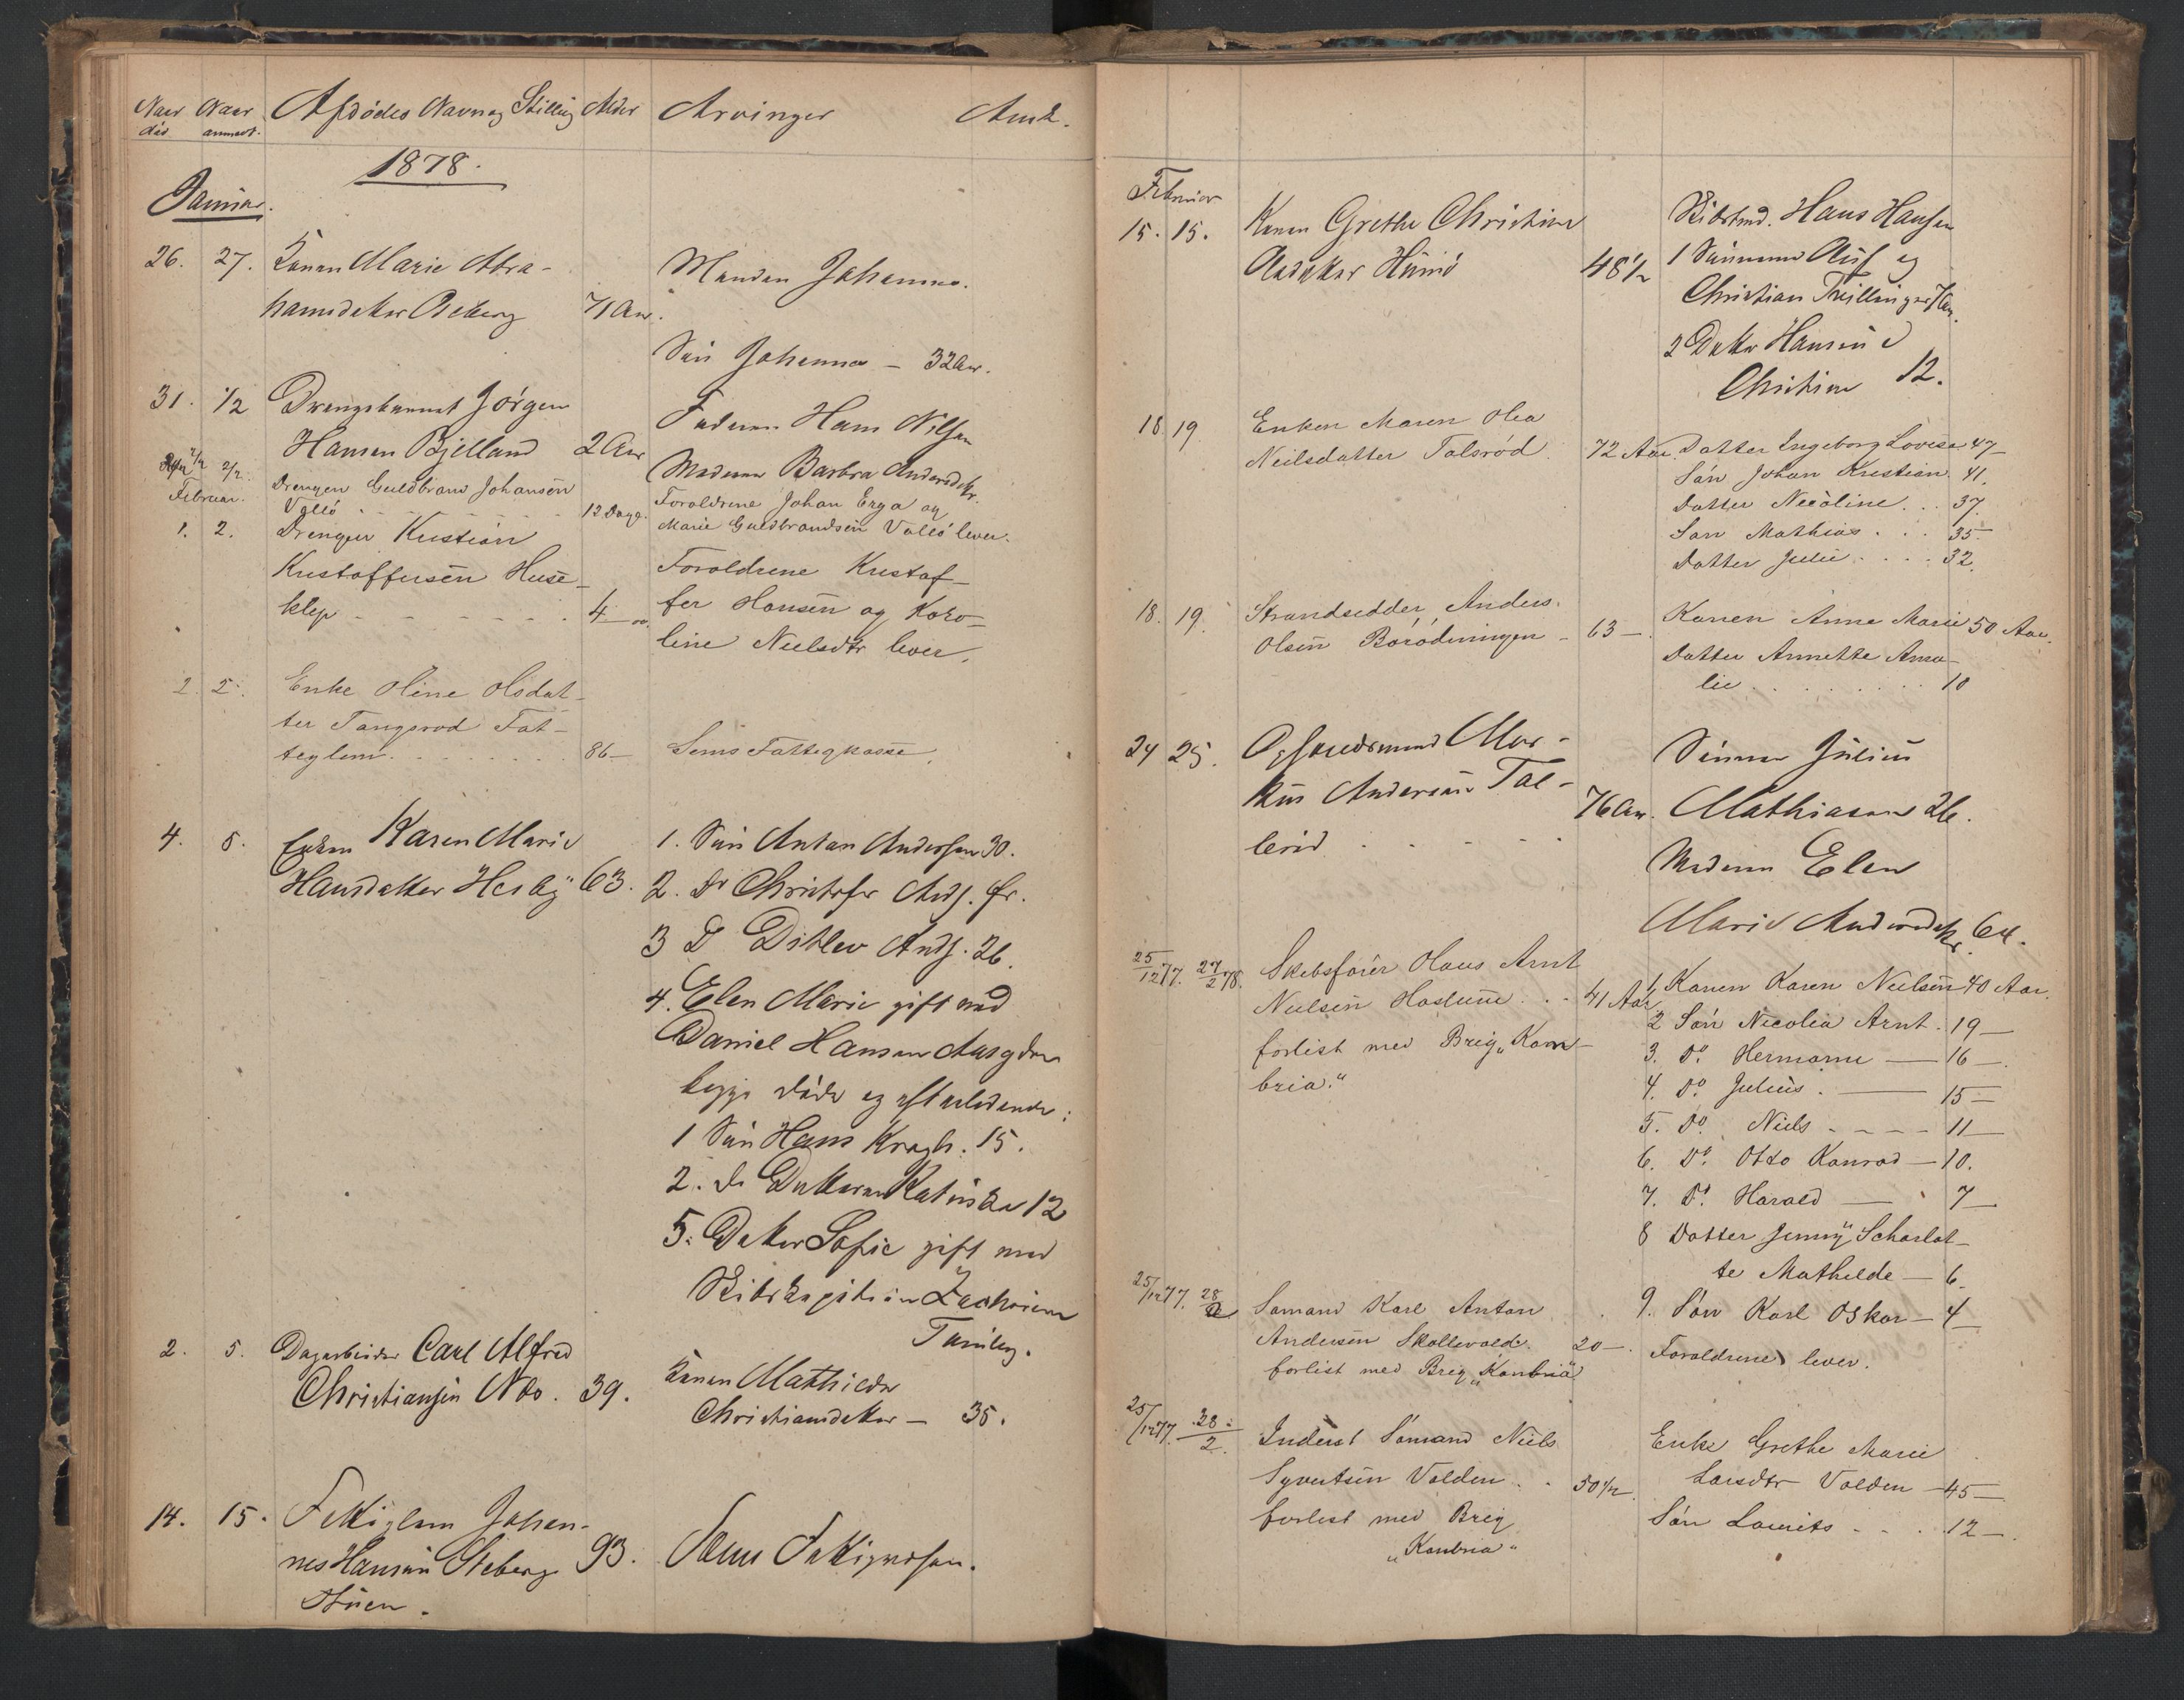 Naar Naar Afdödes Navn og Stilling Alder Arvinger Anm.
död anmeldt.
1878.
Januar.
26. 27. Konen Marie Abra-
hamsdatter Aseberg 71 Aar.
Manden Johannes.
Sön Johannes – 32 Aar.
31. 1/2 Drengebarnet Jörgen
Hansen Bjelland 2 Aar
Faderen Hans Nilsen
Moderen Barbra Andersdtr.
2/2 Drengen Guldbrand Johansen
Vallö 12 Dage.
Foraldrene Johan Erga og
Marie Guldbrandsen Vallö lever.
Februar.
1. 2. Drengen Kristian
Kristoffersen Huse-
klep 4
Foraldrene Kristof-
fer Hansen og Karo-
line Nielsdtr lever.
2. 5. Enke Oline Olsdat-
ter Tangsrod Fat-
tiglem 86– Sems Fattigkasse.
4. 5. Enken Karen Marie
Hansdatter Hesby 63.
1. Sön Anton Andersen 30.
2. Do Christofer Ands.
3 D Ditlev Ands. 26.
4. Elen Marie gift med
Daniel Hansen
begge döde og efterladende:
1 Sön Hans 15.
2. Datteren 12
5. Datter Sofie gift med
Skibskaptein
2. 5. Dagarbeider Carl Alfred
Christiansen Nes. 39.
Konen Mathilde
Christiansdatter – 35.
14. 15. Fattiglem Johan-
nes Hansen Steberg 93. Sems Fattigvæsen.
Februar
15. 15. Konen Grethe Christine
48 1/2
Skibstmd. Hans Hansen
1 Sönnene og
Christian Tvillinger 7 Aar.
2 Datter
Christine 12.
18 19 Enken Maren Olea
Neilsdatter Tolsröd 72 Aar.
Datter Ingeborg Lovise 47–
Sön Johan Kristian. 41.
Datter Nicoline. . . 37.
Sön Mathias . . . 35.
Datter Julie . . . . 32.
18. 19. Strandsidder Anders
Olsen 63–.
Konen Anne Marie 50 Aar.
Datter Annette Ama-
lie . . . . 10
24 25. Opsidersmand Mar-
kus Andersen Tal-
leröd 76 Aar.
Sönnen Julius
Mathiasen 26.
Moderen Elen
Marie Andersdtr. 64.
25/12 77. 27/2 78. Skibsförer Olaus Arnt
Nielsen Haslum . . 41 Aar
forlist med Brig „Kam-
bria.“
1 Konen Karen Nielsen 40 Aar.
2 Sön Nicolia Arnt. 19–
3. Do Hermann – 16–.
4. Do Julius. – 15–
5. Do Niels – – – 11–
6. Do Otto Konrad – 10.
7. Do Harald – 7–
8 Datter Jenny Scharlot-
te Mathilde – 6.
9. Sön Karl Oskar – 4
25/12 77. 28/2 Sömand Karl Anton
Andersen Skallevold. 20–.
forlist med Brig „Kanbria“
Foraldrene lever.
25/12 77. 28/2. Inderst Sömand Niels
Syvertsen Valden . . 50 1/2.
forlist med Brig
„Kanbria“
Enke Grethe Marie
Larsdtr Valden – 45–
Sön Laurits . . . 12–.